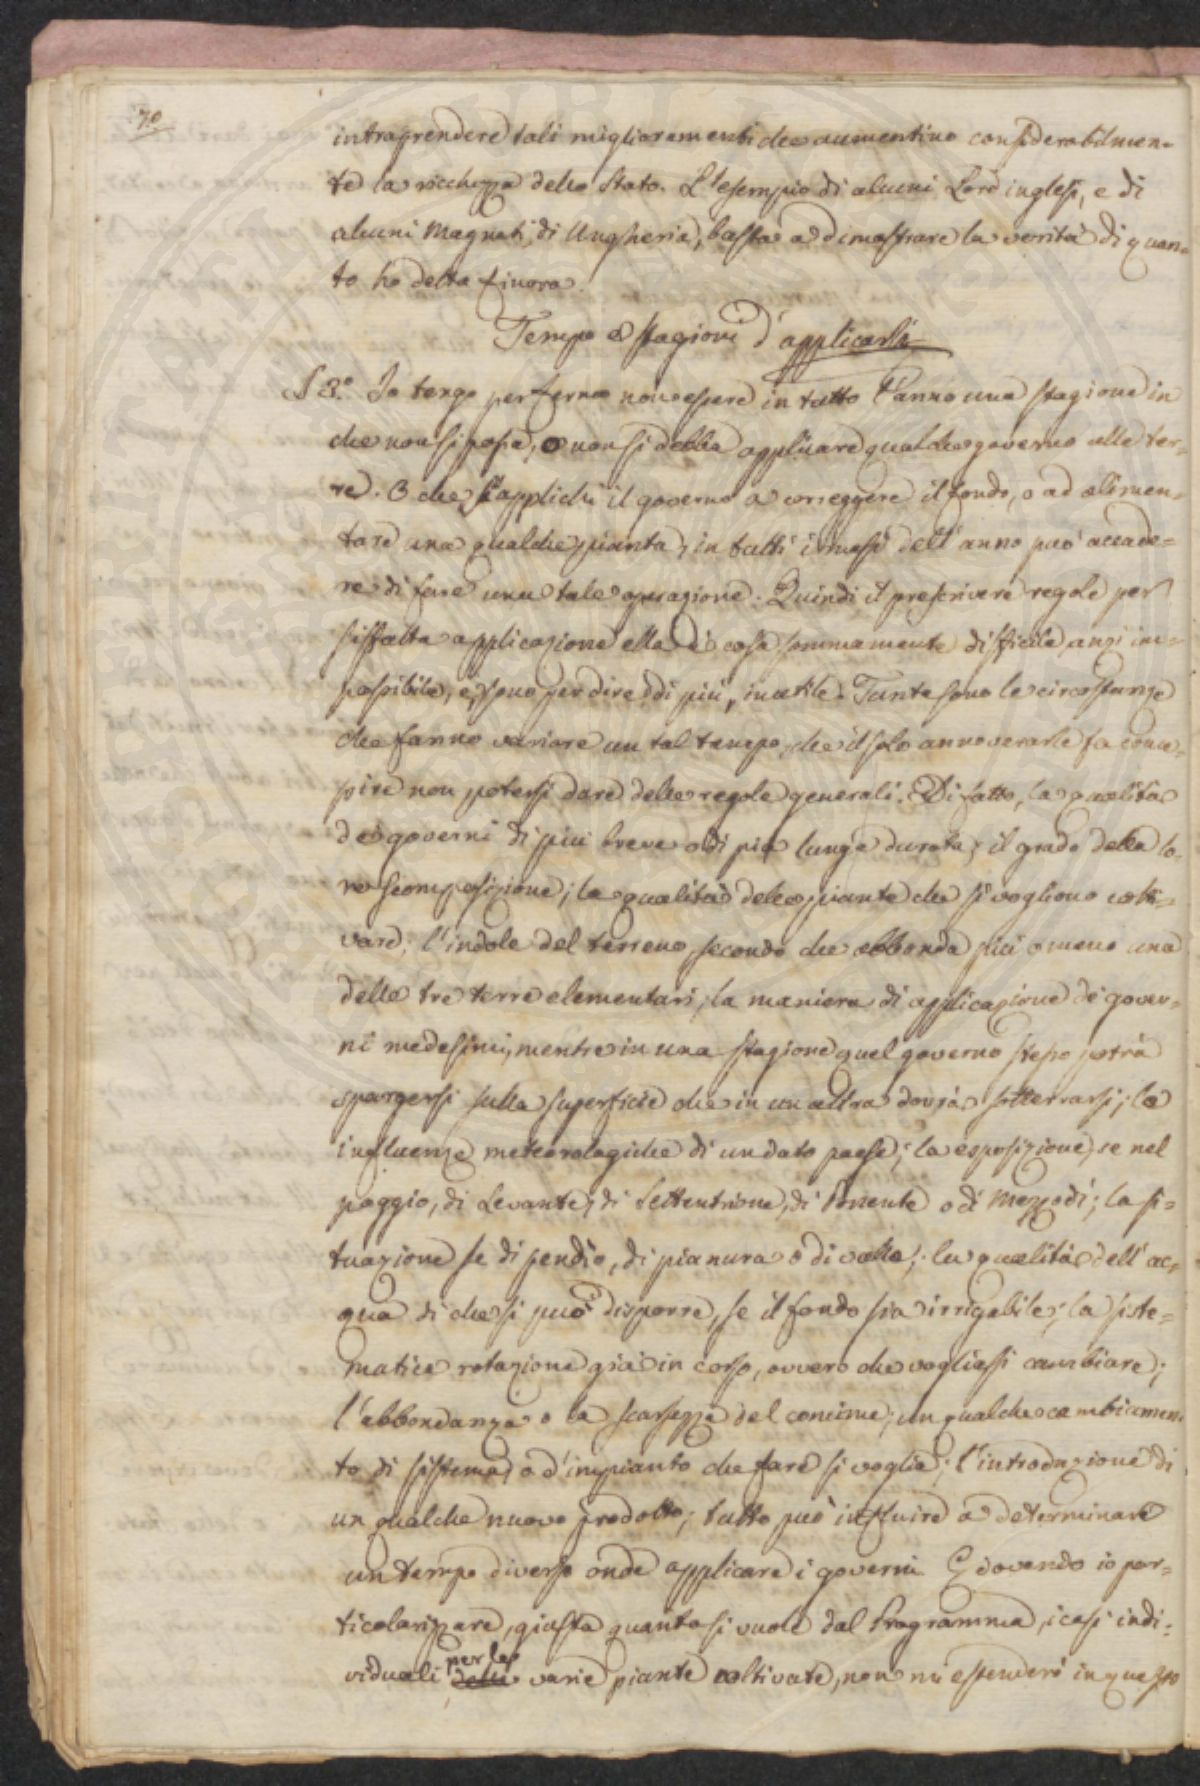 70
intraprendere tali miglioramenti che aumentino considerabilmen=
te la ricchezza dello Stato. L'esempio di alcuni Lord inglesi, e di
alcuni Magnati di Ungheria, basta a dimostrare la verità di quan=
to ho detto finora.
Tempo e stagioni d'applicarli
§ 8.° Io tengo per fermo non essere in tutto l'anno una stagione in
che non si possa, o non si debba applicare qualche governo alle ter=
re. O che s'applichi il governo a correggere il fondo, o ad alimen=
tare una qualche pianta, in tutti i mesi dell'anno può accade=
re di fare una tale operazione. Quindi il prescrivere regole per
siffatta applicazione ella è cosa sommamente difficile, anzi im=
possibile, e, sono per dire di più, inutile. Tante sono le circostanze
che fanno variare un tal tempo, che il solo annoverarle fa conce=
pire non potersi dare delle regole generali. Di fatto, la qualità
de' governi di più breve o di più lunga durata; il grado della lo=
ro scomposizione; la qualità delle piante che si vogliono colti=
vare; l'indole del terreno secondo che abbonda più o meno una
delle tre terre elementari; la maniera di applicazione de' gover=
ni medesimi, mentre in una stagione quel governo stesso potrà
spargersi sulla superficie che in un altra dovrà sotterrarsi; le
influenze meteorologiche di un dato paese; la esposizione, se nel
poggio, di Levante, di Settentrione, di Ponente o di Mezzodì; la si=
tuazione se di pendìo, di pianura o di valle; la qualità dell'ac=
qua di che si può disporre, se il fondo sia irrigabile; la siste=
matica rotazione già in corso, ovvero che vogliasi cambiare;
l'abbondanza o la scarsezza del concime; un qualche cambiamen=
to di sistema, o d'impianto che fare si voglia; l'introduzione di
un qualche nuovo prodotto; tutto può influire a determinare
un tempo diverso onde applicare i governi. E dovendo io par=
ticolarizzare, giusta quanto si vuole dal Programma, i casi indi=
viduali per le delle varie piante coltivate, non mi estenderò in questo